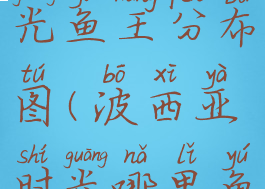 光鱼王分布
tú bō xī yà
图(波西亚
shí guāng nǎ lǐ yú
时光哪里鱼